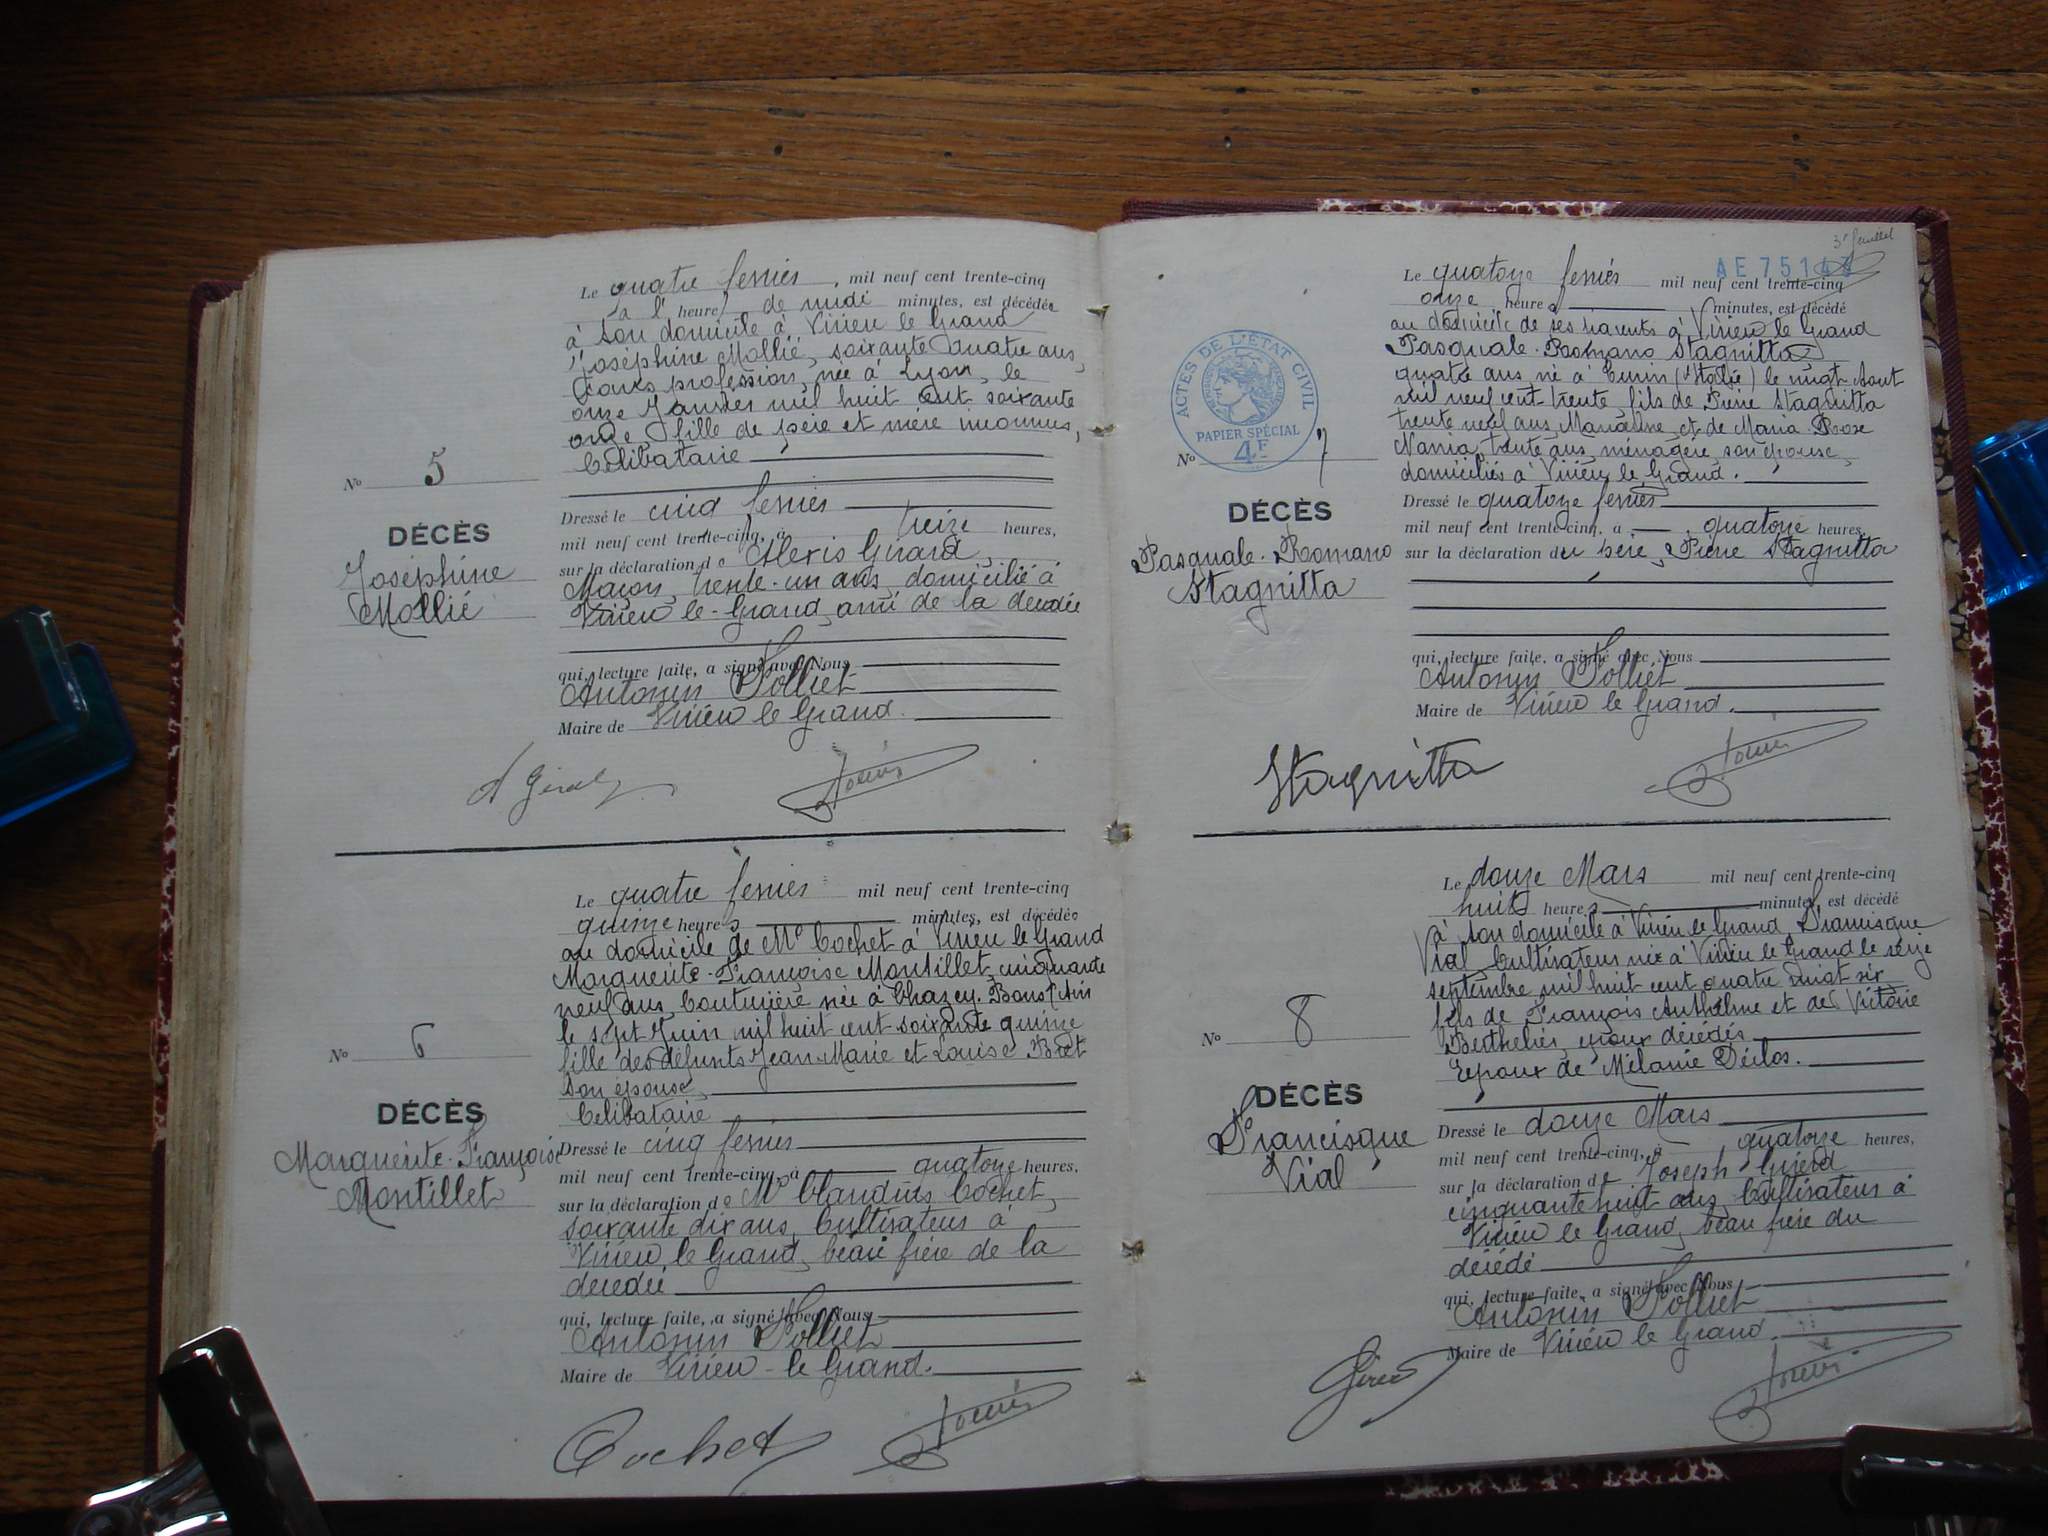 Le quatre fevrier, mil neuf cent trente-cinq
à l' heure de midi minutes, est décédée
à son domicile à Virieu le Grand
Joséphine Mollié, soixante quatre ans,
sans profession, née à Lyon, le
onze Janvier mil huit cent soixante
onze fille de père et mère inconnus,
Celibataire
No 5
DÉCÈS
Joséphine
Mollié
Dressé le cinq fevrier
mil neuf cent trente-cinq, à treize heures,
sur la déclaration de Alexis Girard
Maçon, trente-un ans, domicilié à
Virieu le-Grand, ami de la décédée
qui, lecture faite, a signé avec Nous
Antonin
Maire de Virieu le Grand.
Le quatre fevrier mil neuf cent trente-cinq
quinze heures minutes, est décédée
au domicile de Mr Cochet à Virieu le Grand
Marguerite-Françoise Montillet, cinquante
neuf ans, Couturière née à Chazey-Bons (Ain
le sept Juin mil huit cent soixante quinze
fille des défunts Jean-Marie et Louise Bret
son épouse
Celibataire
No 6
DÉCÈS
Marguerite-Françoise
Montillet
Dressé le cinq fevrier
mil neuf cent trente-cinq, à quatorze heures,
sur la déclaration de Mr Claudius Cochet,
soixante dix ans, Cultivateur à
Virieu le Grand, beau frère de la
décédée
qui, lecture faite, a signé avec Nous
Antonin
Maire de Virieu-le Grand.
Cochet
3e feuillet
AE 7514
Le quatorze fevrier mil neuf cent trente-cinq
onze heures minutes, est décédé
au domicile de ses parents à Virieu le Grand
Pasquale-Romano Stagnitta
quatre ans né à Turin (Italie) le vingt Aout
mil neuf cent trente, fils de Pierre Stagnitta
trente neuf ans, et de Maria-Rose
Nania, trente ans, ménagère, son épouse,
domiciliés à Virieu le Grand.
ACTES DE L'ÉTAT CIVIL
PAPIER SPÉCIAL
4F
No 7
DÉCÈS
Pasquale-Romano
Stagnitta
Dressé le quatorze fevrier
mil neuf cent trente-cinq, à quatorze heures,
sur la déclaration du père, Pierre Stagnitta
qui, lecture faite, a signé avec Nous
Antonin
Maire de Virieu le Grand.
Stagnitta
Le douze Mars mil neuf cent trente-cinq
huit heures minutes, est décédé
à son domicile à Virieu le Grand, Francisque
Vial Cultivateur né à Virieu le Grand le seize
septembre mil huit cent quatre vingt six
fils de François Anthelme et de Victoire
Berthelier, époux décédés
Epoux de Mélanie Déclos.
No 8
DÉCÈS
Francisque
Vial
Dressé le douze Mars
mil neuf cent trente-cinq, à quatorze heures,
sur la déclaration de Joseph
cinquante huit ans Cultivateur à
Virieu le Grand, beau frère du
décédé
qui, lecture faite, a signé avec Nous
Antonin
Maire de Virieu le Grand.